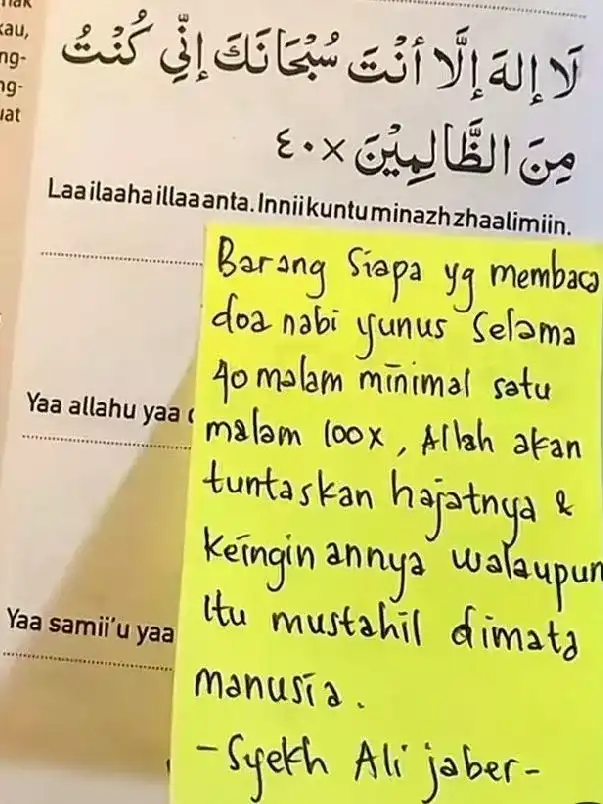 kau,
ng-
ng-
uat
لَا إِلهَ إِلَّا أَنْتَ سُبْحَانَكَ إِنِّي كُنْتُ
مِنَ الظَّالِمِيْنَ ×٤٠
Laa ilaaha illaa anta. Innii kuntu minazh zhaalimiin.
Yaa allahu yaa
Yaa samii'u yaa
Barang Siapa yg membaca
doa nabi yunus Selama
40 malam minimal satu
malam 100x, Allah akan
tuntaskan hajatnya &
keinginannya walaupun
Itu mustahil dimata
manusia.
-Syekh Ali jaber-